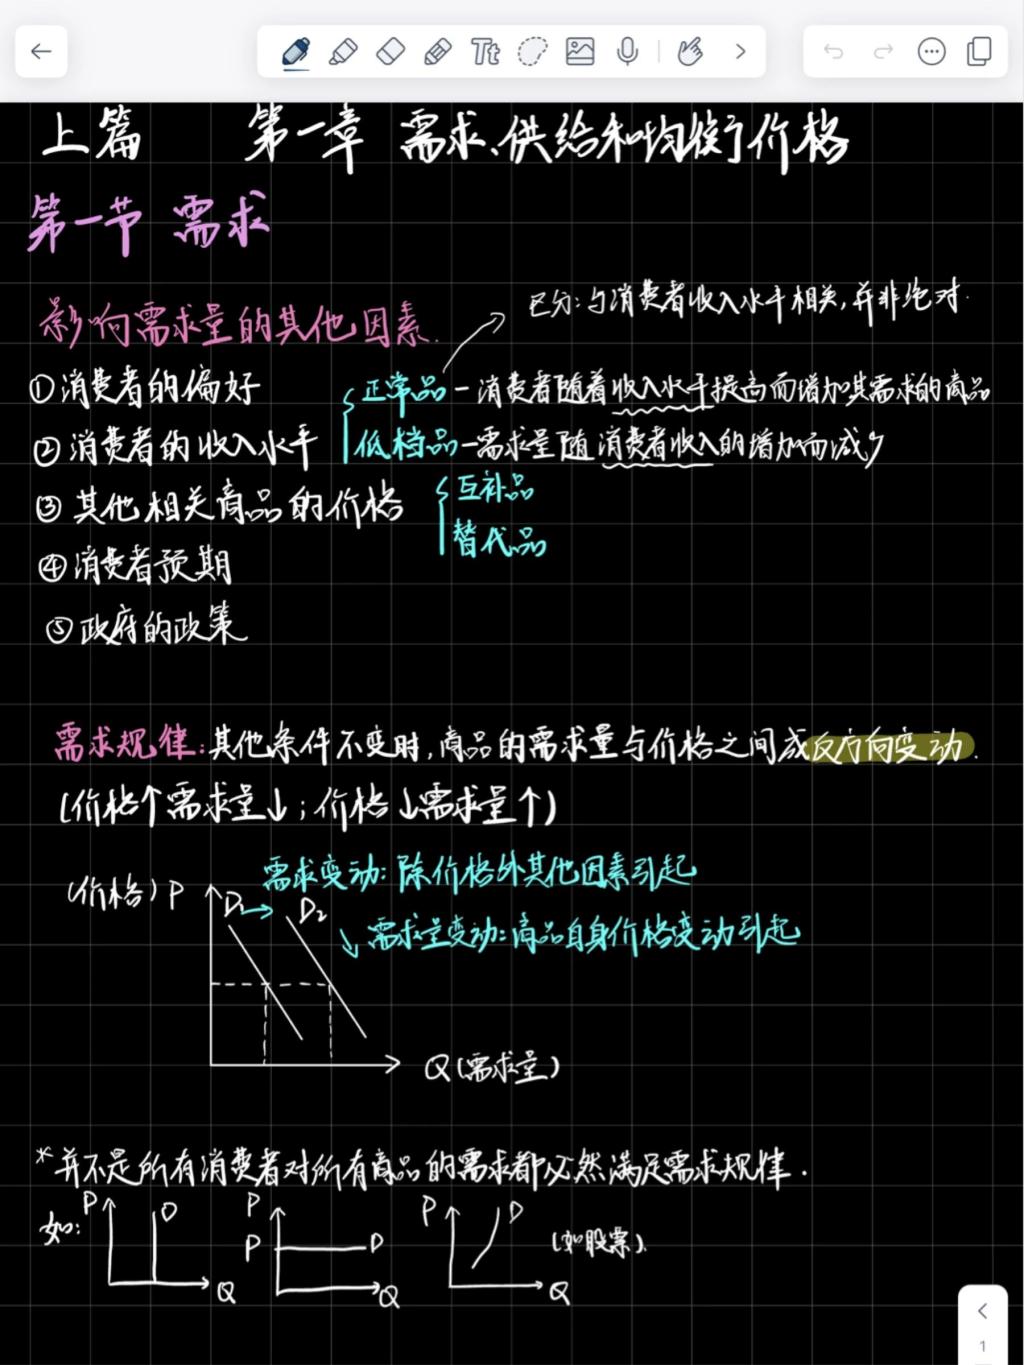 Tt
上篇 第一章 需求、供给和均衡价格
第一节 需求
影响需求量的其他因素.
区分:与消费者收入水平相关,并非绝对.
①消费者的偏好
正常品—消费者随着收入水平提高而增加其需求的商品
②消费者的收入水平
低档品—需求量随消费者收入的增加而减少
③其他相关商品的价格
互补品
替代品
④消费者预期
⑤政府的政策
需求规律:其他条件不变时,商品的需求量与价格之间成反方向变动.
(价格↑需求量↓;价格↓需求量↑)
需求变动:除价格外其他因素引起
(价格)P
D₁→D₂
↘需求量变动:商品自身价格变动引起
Q(需求量)
*并不是所有消费者对所有商品的需求都必然满足需求规律.
如:
P D Q
P P D Q
P D Q
(如股票).
1